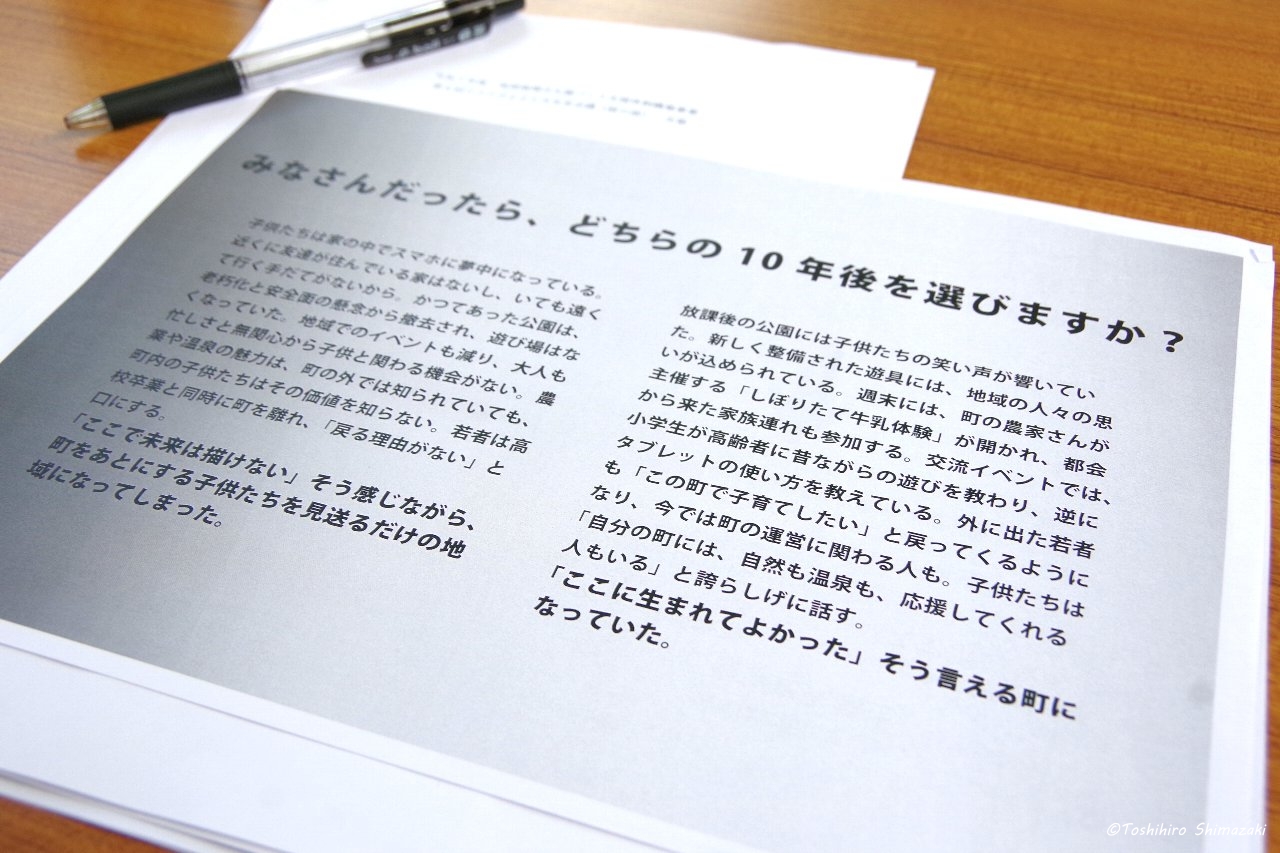 みなさんだったら、どちらの10年後を選びますか？
子供たちは家の中でスマホに夢中になっている。
近くに友達が住んでいる家はないし、いても遠く
て行く手だてがないから。かつてあった公園は、
老朽化と安全面の懸念から撤去され、遊び場はな
くなっていた。地域でのイベントも減り、大人も
忙しさと無関心から子供と関わる機会がない。農
業や温泉の魅力は、町の外では知られていても、
町内の子供たちはその価値を知らない。若者は高
校卒業と同時に町を離れ、「戻る理由がない」と
口にする。
「ここで未来は描けない」そう感じながら、
町をあとにする子供たちを見送るだけの地
域になってしまった。
放課後の公園には子供たちの笑い声が響いてい
た。新しく整備された遊具には、地域の人々の思
いが込められている。週末には、町の農家さんが
主催する「しぼりたて牛乳体験」が開かれ、都会
から来た家族連れも参加する。交流イベントでは、
小学生が高齢者に昔ながらの遊びを教わり、逆に
タブレットの使い方を教えている。外に出た若者
も「この町で子育てしたい」と戻ってくるように
なり、今では町の運営に関わる人も。子供たちは
「自分の町には、自然も温泉も、応援してくれる
人もいる」と誇らしげに話す。
「ここに生まれてよかった」そう言える町に
なっていた。
©Toshihiro Shimazaki